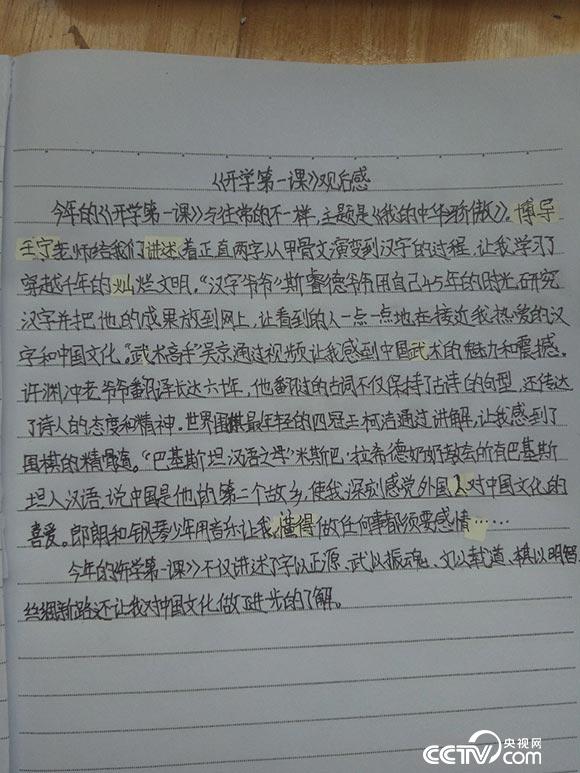 《开学第一课》观后感
今年的《开学第一课》与往常的不一样,主题是《我的中华骄傲》。博导
王宁老师给我们讲述着正直两字从甲骨文演变到汉字的过程,让我学习了
穿越千年的灿烂文明。“汉字爷爷”斯睿德爷爷用自己45年的时光,研究
汉字并把他的成果放到网上,让看到的人一点一点地在接近我热爱的汉
字和中国文化。“武术高手”吴京通过视频让我感到中国武术的魅力和震撼。
许渊冲老爷爷翻译长达六十年,他翻过的古词不仅保持了古诗的句型,还传达
了诗人的态度和精神。世界围棋最年轻的四冠王柯洁通过讲解,让我感到了
围棋的精髓。“巴基斯坦汉语之母”米斯巴·拉希德奶奶教会所有巴基斯
坦人汉语,说中国是他的第二个故乡,使我深刻感觉外国人对中国文化的
喜爱。郎朗和钢琴少年用音乐让我懂得做任何事都须要感情……
今年的《开学第一课》不仅讲述了字以正源、武以振魂、文以载道、棋以明智、
丝绸新路,还让我对中国文化做了进步的了解。
CCTV.com 央视网